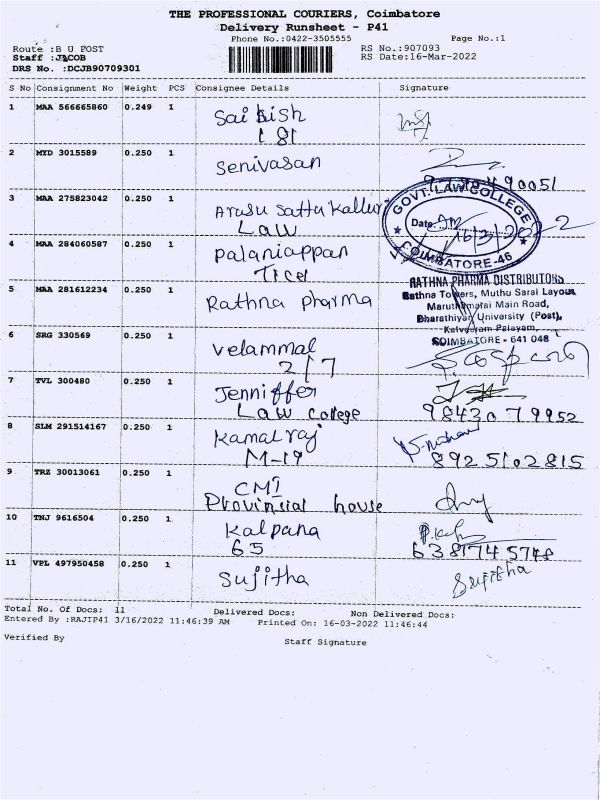 THE PROFESSIONAL COURIERS, Coimbatore
Delivery Runsheet - P41
Phone No.:0422-3505555 Page No.:1
Route :B U POST RS No.:907093
Staff :JACOB RS Date:16-Mar-2022
DRS No. :DCJB90709301
S No Consignment No Weight PCS Consignee Details Signature
1 MAA 566665860 0.249 1 Sai
181
2 MYD 3015589 0.250 1 Senivasan
90051
3 MAA 275823042 0.250 1 Arasu Sattu Kallur
Law
GOVT. LAW COLLEGE
Date:
16/3/2022
COIMBATORE-46
4 MAA 284060587 0.250 1 Palaniappan
Ticel
5 MAA 281612234 0.250 1 Rathna pharma
RATHNA PHARMA DISTRIBUTORS
Rathna Towers, Muthu Sarai Layout
Maruthamalai Main Road,
Bharathiyar University (Post),
Kalveeram Palayam,
COIMBATORE - 641 048
6 SRG 330569 0.250 1 Velammal
217
7 TVL 300480 0.250 1 Jenniffer
Law college 9843079952
8 SLM 291514167 0.250 1 Kamalraj
M-19 8925102815
9 TRZ 30013061 0.250 1 CMI
Provinsial house
10 TNJ 9616504 0.250 1 Kalpana
65 6381745748
11 VPL 497950458 0.250 1 Sujitha Sujitha
Total No. Of Docs: 11 Delivered Docs: Non Delivered Docs:
Entered By :RAJIP41 3/16/2022 11:46:39 AM Printed On: 16-03-2022 11:46:44
Verified By Staff Signature